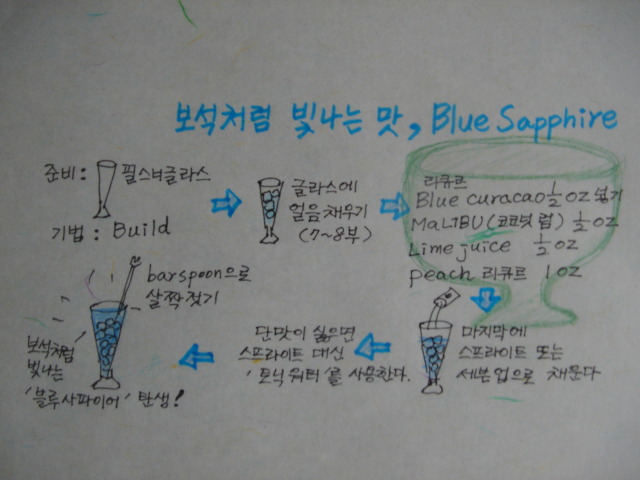 보석처럼 빛나는 맛, Blue Sapphire
준비: 필스너글라스
기법: Build
글라스에
얼음채우기
(7~8부)
리큐르
Blue curacao ½ oz 넣기
MaLIBU (코코넛 럼) ½ oz
Lime juice ½ oz
peach 리큐르 1 oz
마지막에
스프라이트 또는
세븐업으로 채운다
단맛이 싫으면
스프라이트 대신
'토닉워터'를 사용한다.
barspoon으로
살짝 젓기
보석처럼
빛나는
'블루사파이어' 탄생!